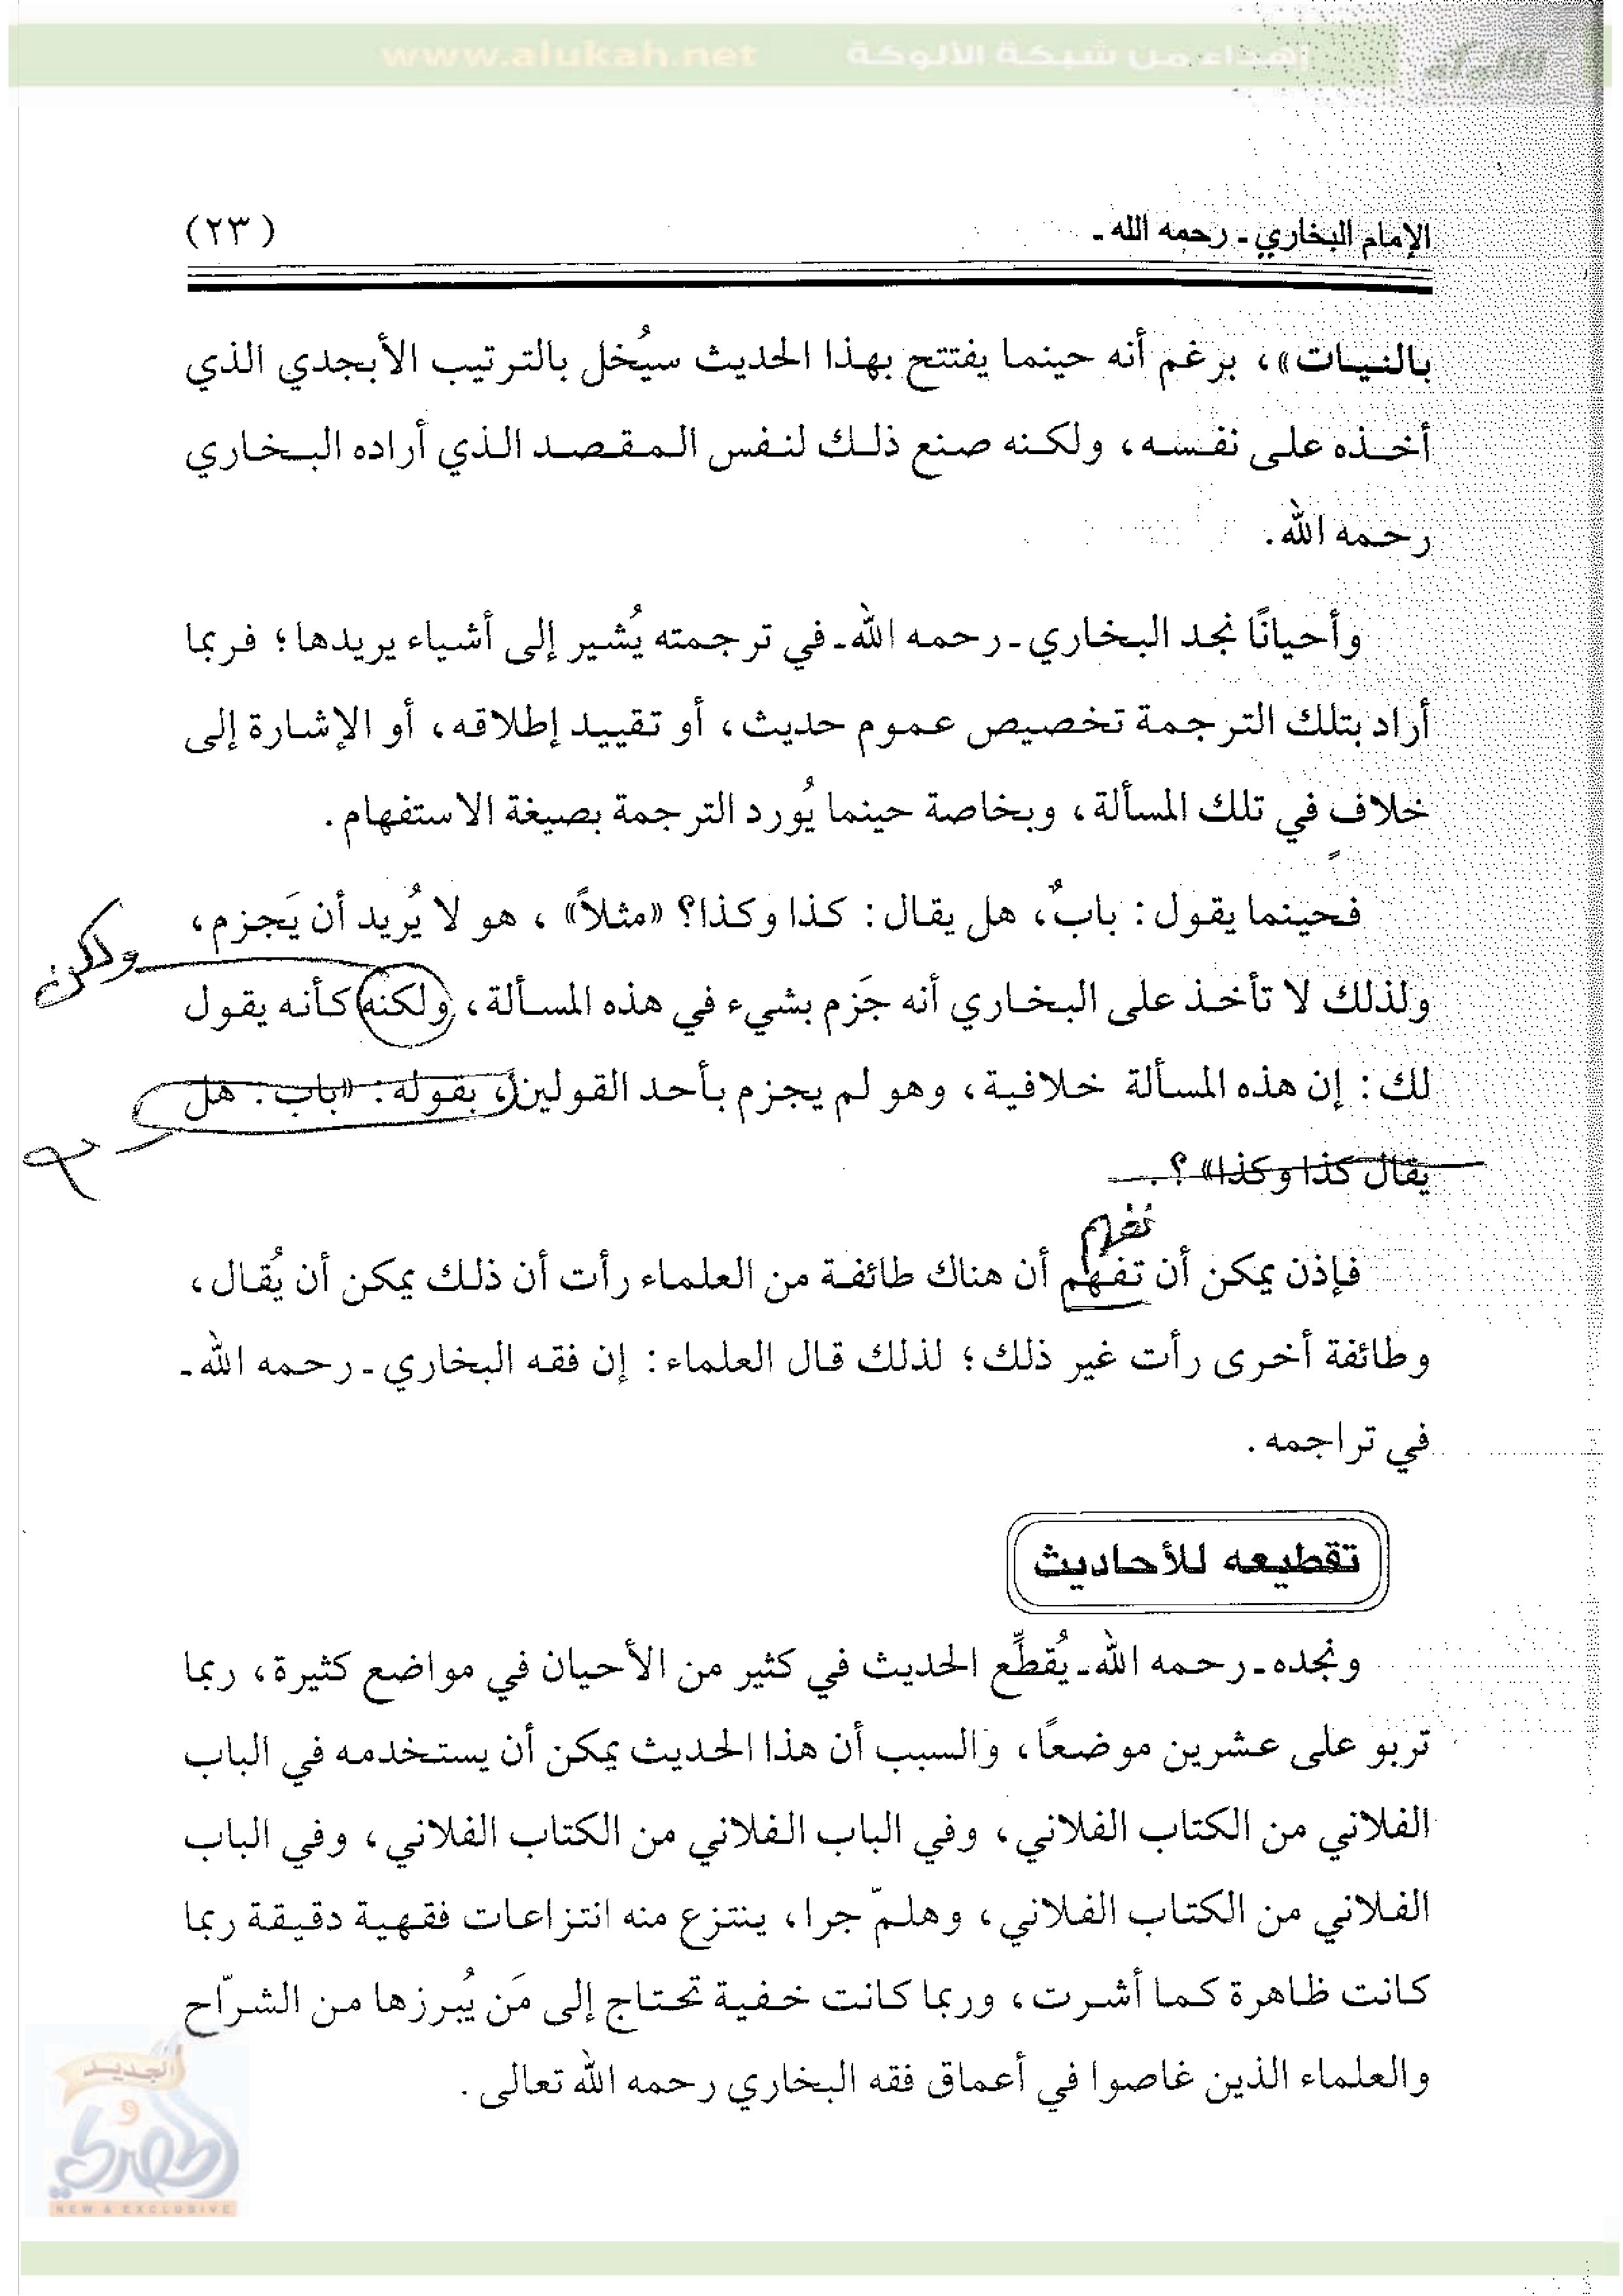 www.alukah.net إهداء من شبكة الألوكة
الإمام البخاري ـ رحمه الله ـ (٢٣)
بالنيات»، برغم أنه حينما يفتتح بهذا الحديث سيُخل بالترتيب الأبجدي الذي
أخذه على نفسه، ولكنه صنع ذلك لنفس المقصد الذي أراده البخاري
رحمه الله.
وأحيانًا نجد البخاري ـ رحمه الله ـ في ترجمته يُشير إلى أشياء يريدها؛ فربما
أراد بتلك الترجمة تخصيص عموم حديث، أو تقييد إطلاقه، أو الإشارة إلى
خلافٍ في تلك المسألة، وبخاصة حينما يُورد الترجمة بصيغة الاستفهام.
فحينما يقول: بابٌ، هل يقال: كذا وكذا؟ «مثلاً»، هو لا يُريد أن يَجزم،
ولكن
ولذلك لا تأخذ على البخاري أنه جَزم بشيء في هذه المسألة، ولكنه كأنه يقول
لك: إن هذه المسألة خلافية، وهو لم يجزم بأحد القولين، بقوله: «باب: هل
يقال كذا وكذا»؟.
نفهم
فإذن يمكن أن تفهم أن هناك طائفة من العلماء رأت أن ذلك يمكن أن يُقال،
وطائفة أخرى رأت غير ذلك؛ لذلك قال العلماء: إن فقه البخاري ـ رحمه الله ـ
في تراجمه.
تقطيعه للأحاديث
ونجده ـ رحمه الله ـ يُقطِّع الحديث في كثير من الأحيان في مواضع كثيرة، ربما
تربو على عشرين موضعًا، والسبب أن هذا الحديث يمكن أن يستخدمه في الباب
الفلاني من الكتاب الفلاني، وفي الباب الفلاني من الكتاب الفلاني، وفي الباب
الفلاني من الكتاب الفلاني، وهلمّ جرا، ينتزع منه انتزاعات فقهية دقيقة ربما
كانت ظاهرة كما أشرت، وربما كانت خفية تحتاج إلى مَن يُبرزها من الشرّاح
والعلماء الذين غاصوا في أعماق فقه البخاري رحمه الله تعالى.
الجديد
و
الحصري
NEW & EXCLUSIVE